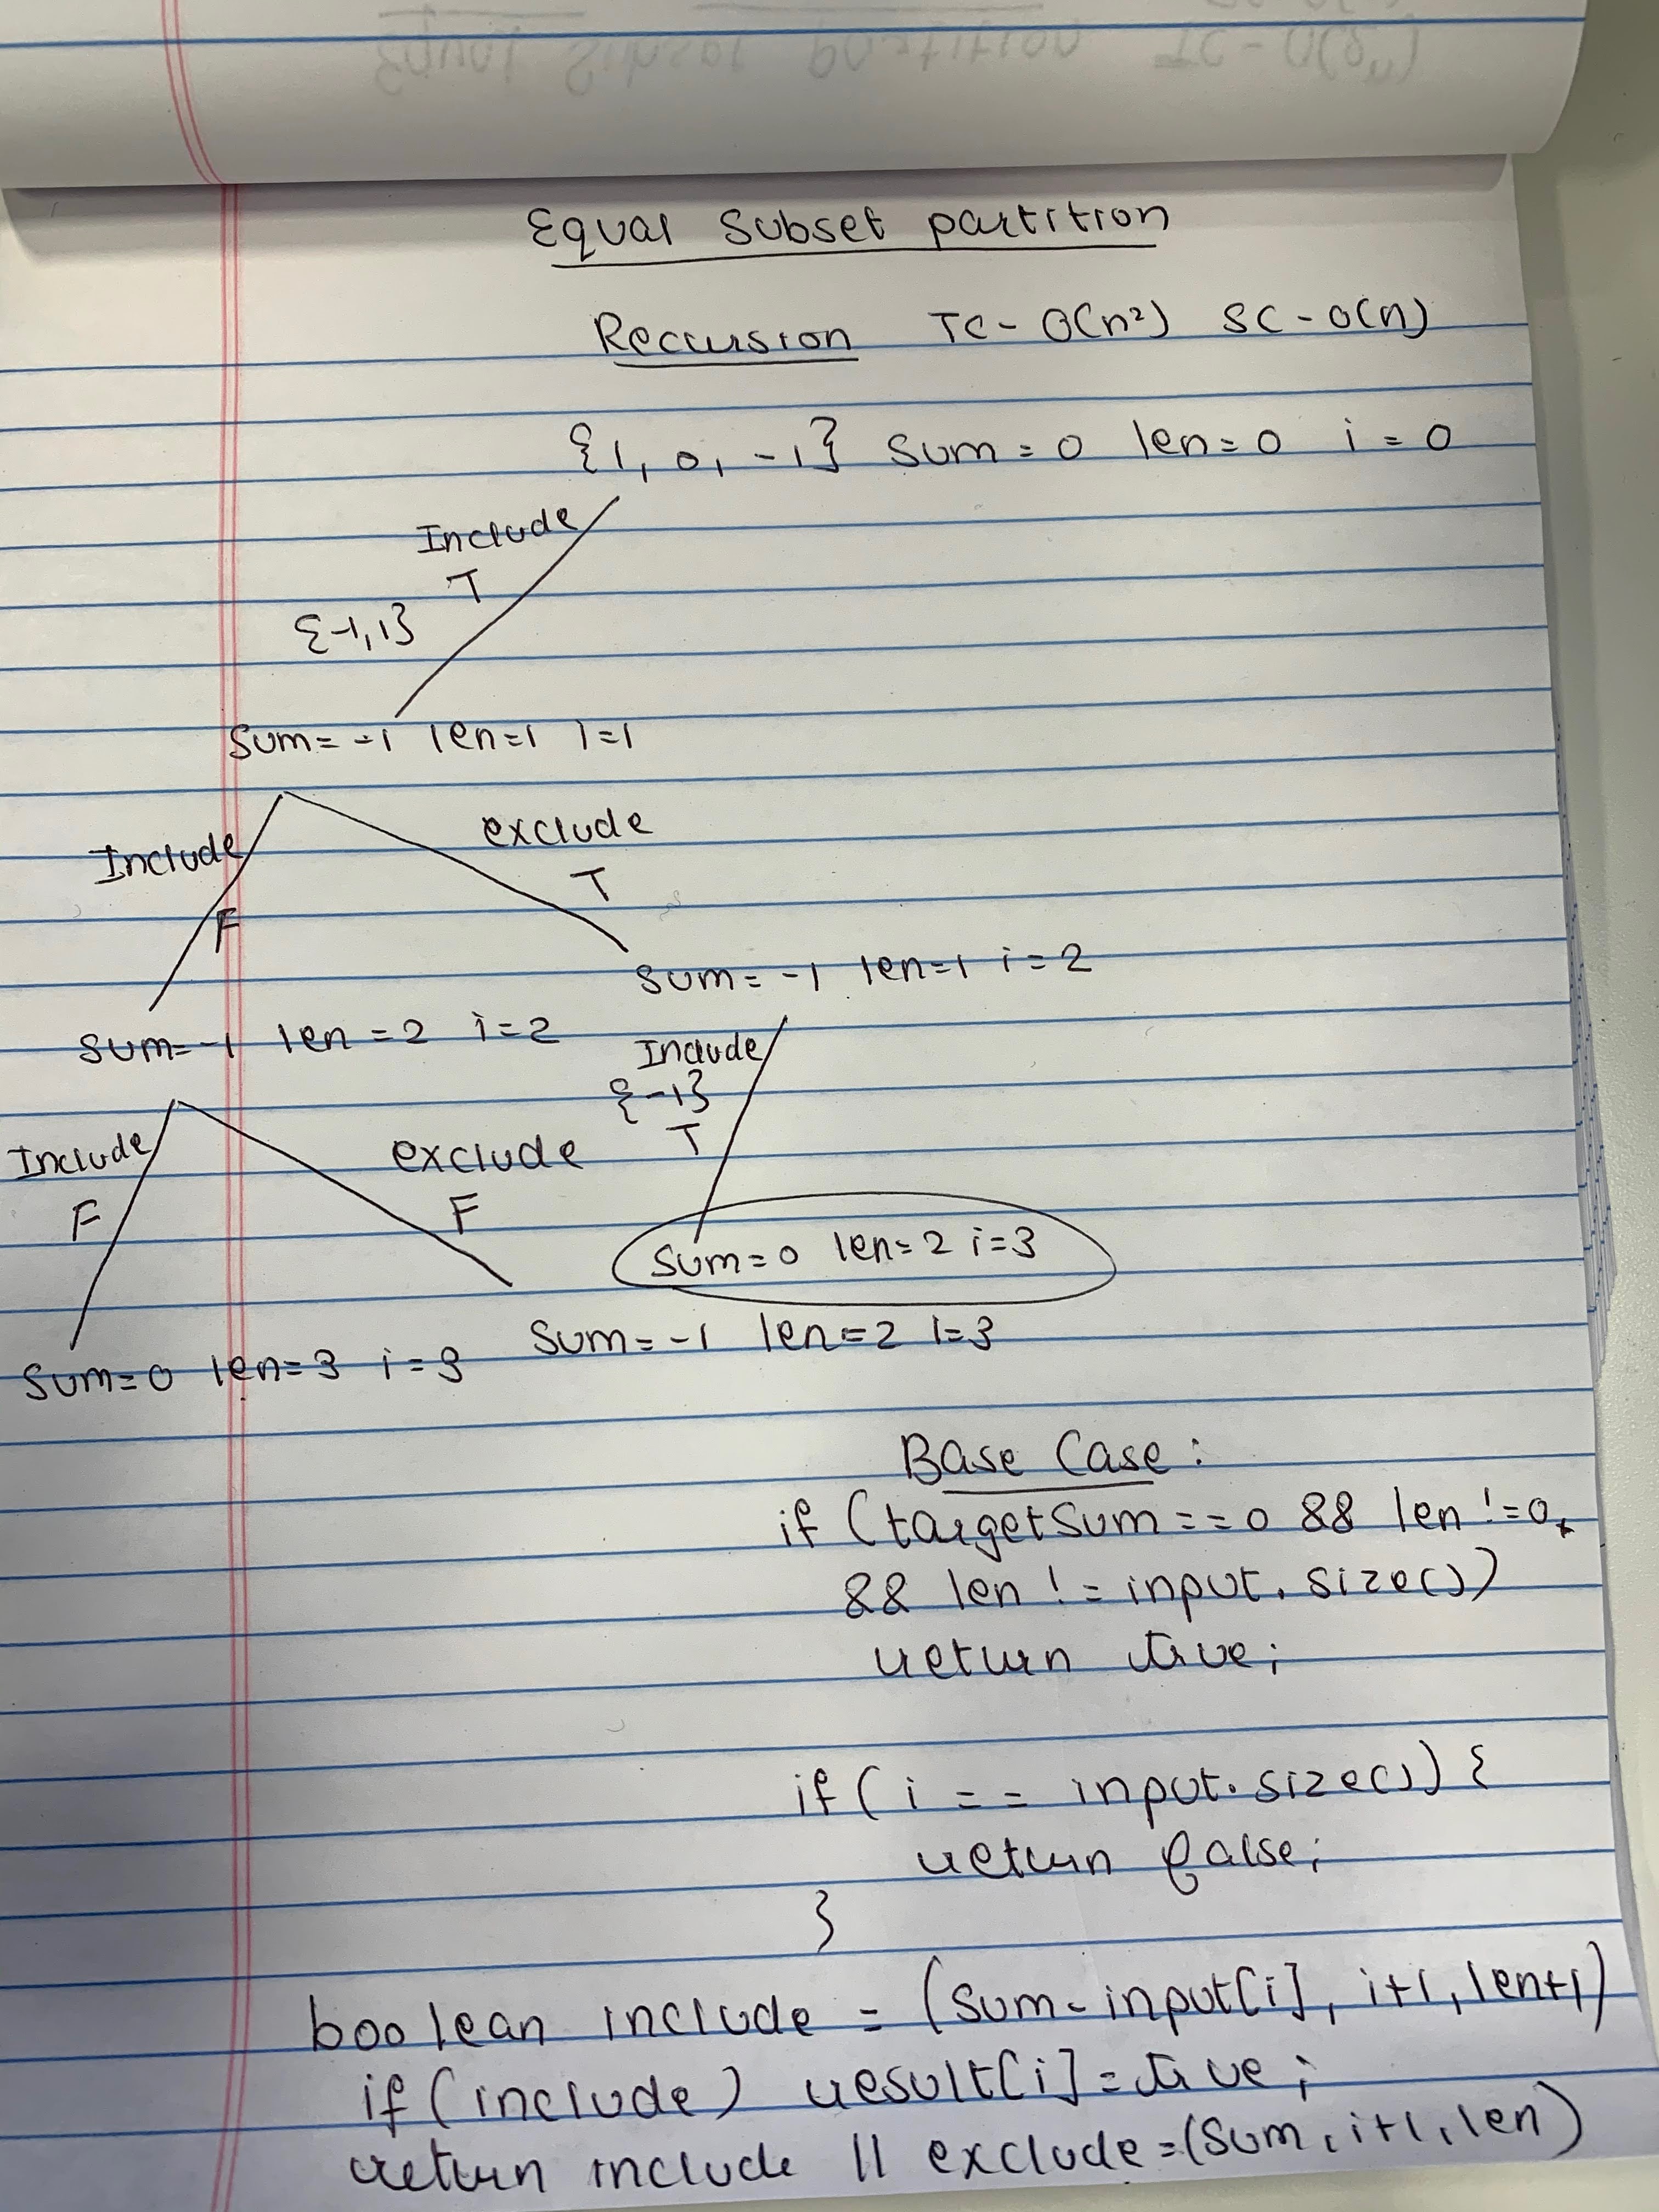 Equal Subset partition
Recursion TC- O(n²) SC-O(n)
{1, 0, -1} Sum = 0 len = 0 i = 0
Include
T
{-1,1}
Sum= -1 len=1 i=1
Include exclude
F T
Sum= -1 len=1 i=2
Sum=-1 len=2 i=2
Include
{-1}
T
Include exclude
F F
Sum=0 len=2 i=3
Sum=-1 len=2 i=3
Sum=0 len=3 i=3
Base Case:
if (targetSum==0 && len !=0
&& len != input.size())
return true;
if( i == input.size()) {
return false;
}
boolean include = (sum-input[i], i+1, len+1)
if(include) result[i]=true;
return include || exclude=(sum, i+1, len)